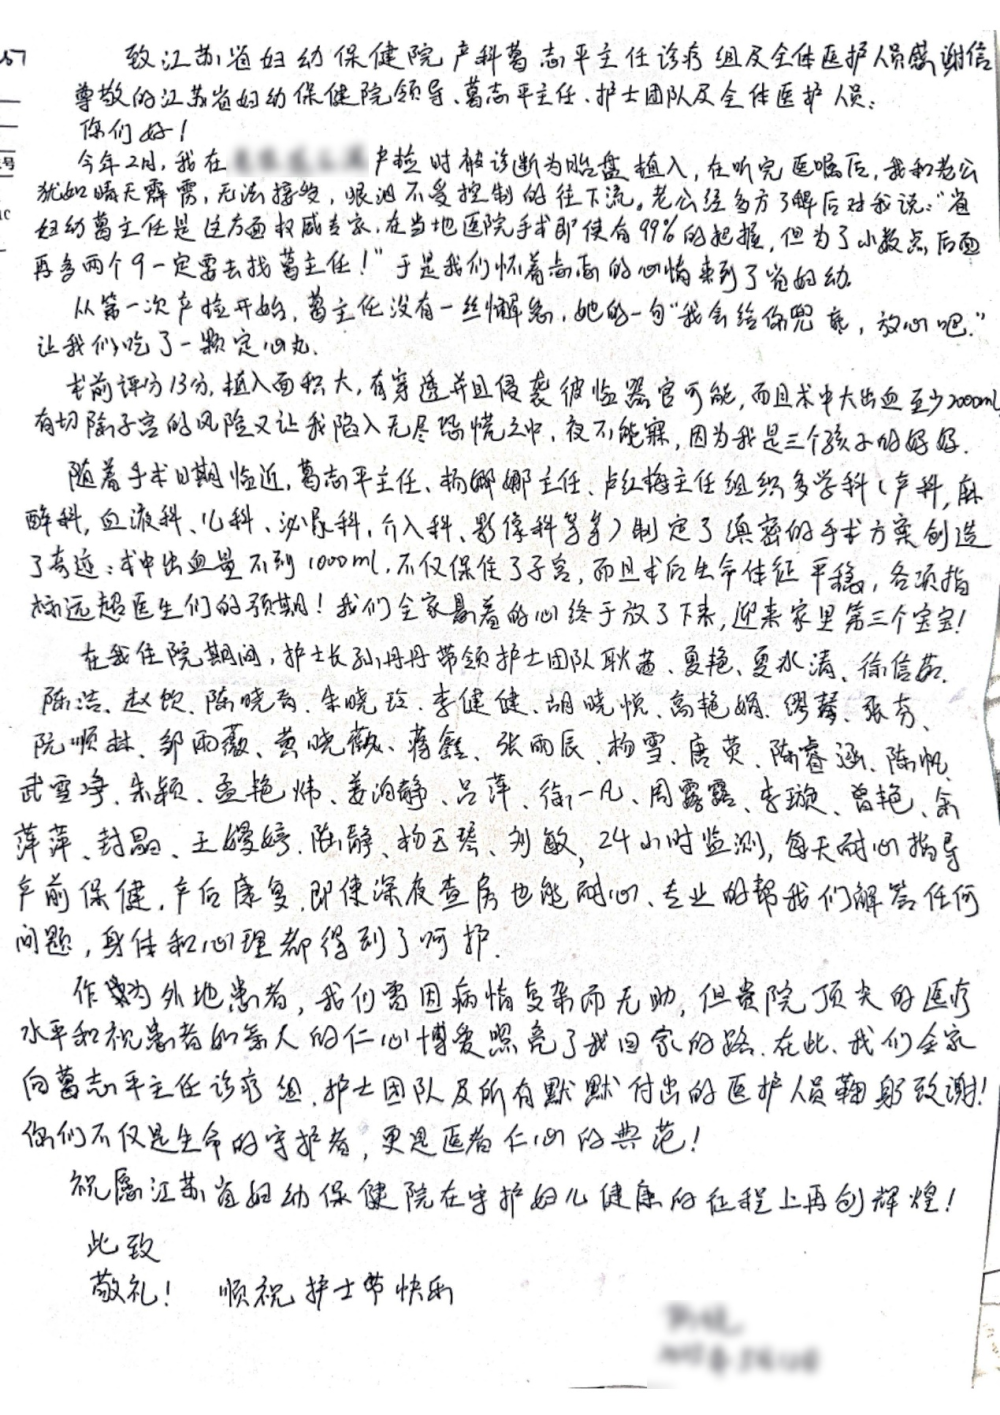 致江苏省妇幼保健院产科葛志平主任诊疗组及全体医护人员感谢信
尊敬的江苏省妇幼保健院领导、葛志平主任、护士团队及全体医护人员:
你们好!
今年2月,我在 产检时被诊断为胎盘植入,在听完医嘱后,我和老公
犹如晴天霹雳,无法接受,眼泪不受控制的往下流。老公经多方了解后对我说:“省
妇幼葛主任是这方面权威专家,在当地医院手术即使有99%的把握,但为了小数点后面
再多两个9一定要去找葛主任!”于是我们怀着忐忑的心情来到了省妇幼.
从第一次产检开始,葛主任没有一丝懈怠,她的一句“我会给你兜底,放心吧.”
让我们吃了一颗定心丸.
术前评分13分,植入面积大,有穿透并且侵袭彼临器官可能,而且术中大出血至少2000ml
有切除子宫的风险又让我陷入无尽恐慌之中,夜不能寐,因为我是三个孩子的妈妈.
随着手术日期临近,葛志平主任、杨娜娜主任、卢红梅主任组织多学科(产科,麻
醉科,血液科、儿科、泌尿科,介入科、影像科等等)制定了缜密的手术方案创造
了奇迹:术中出血量不到1000ml,不仅保住了子宫,而且术后生命体征平稳,各项指
标远超医生们的预期!我们全家悬着的心终于放了下来,迎来家里第三个宝宝!
在我住院期间,护士长孙丹丹带领护士团队耿茜、夏艳、夏水清、徐信茹、
陈浩、赵饮、陈晓云、朱晓玲、李健健、胡晓悦、高艳娟、缪馨、张芳、
阮顺林、邹雨薇、黄晓薇、蒋鑫、张雨辰、杨雪、唐英、陈睿涵、陈帆、
武雪峥、朱颖、孟艳炜、姜泊静、吕萍、徐一凡、周露露、李璇、曾艳、余
萍萍、封晶、王嫚婷、陈静、杨玉琴、刘敏,24小时监测,每天耐心指导
产前保健,产后康复,即使深夜查房也能耐心、专业的帮我们解答任何
问题,身体和心理都得到了呵护.
作为外地患者,我们曾因病情复杂而无助,但贵院顶尖的医疗
水平和视患者如亲人的仁心博爱照亮了我回家的路.在此,我们全家
向葛志平主任诊疗组、护士团队及所有默默付出的医护人员鞠躬致谢!
你们不仅是生命的守护者,更是医者仁心的典范!
祝愿江苏省妇幼保健院在守护妇儿健康的征程上再创辉煌!
此致
敬礼! 顺祝护士节快乐